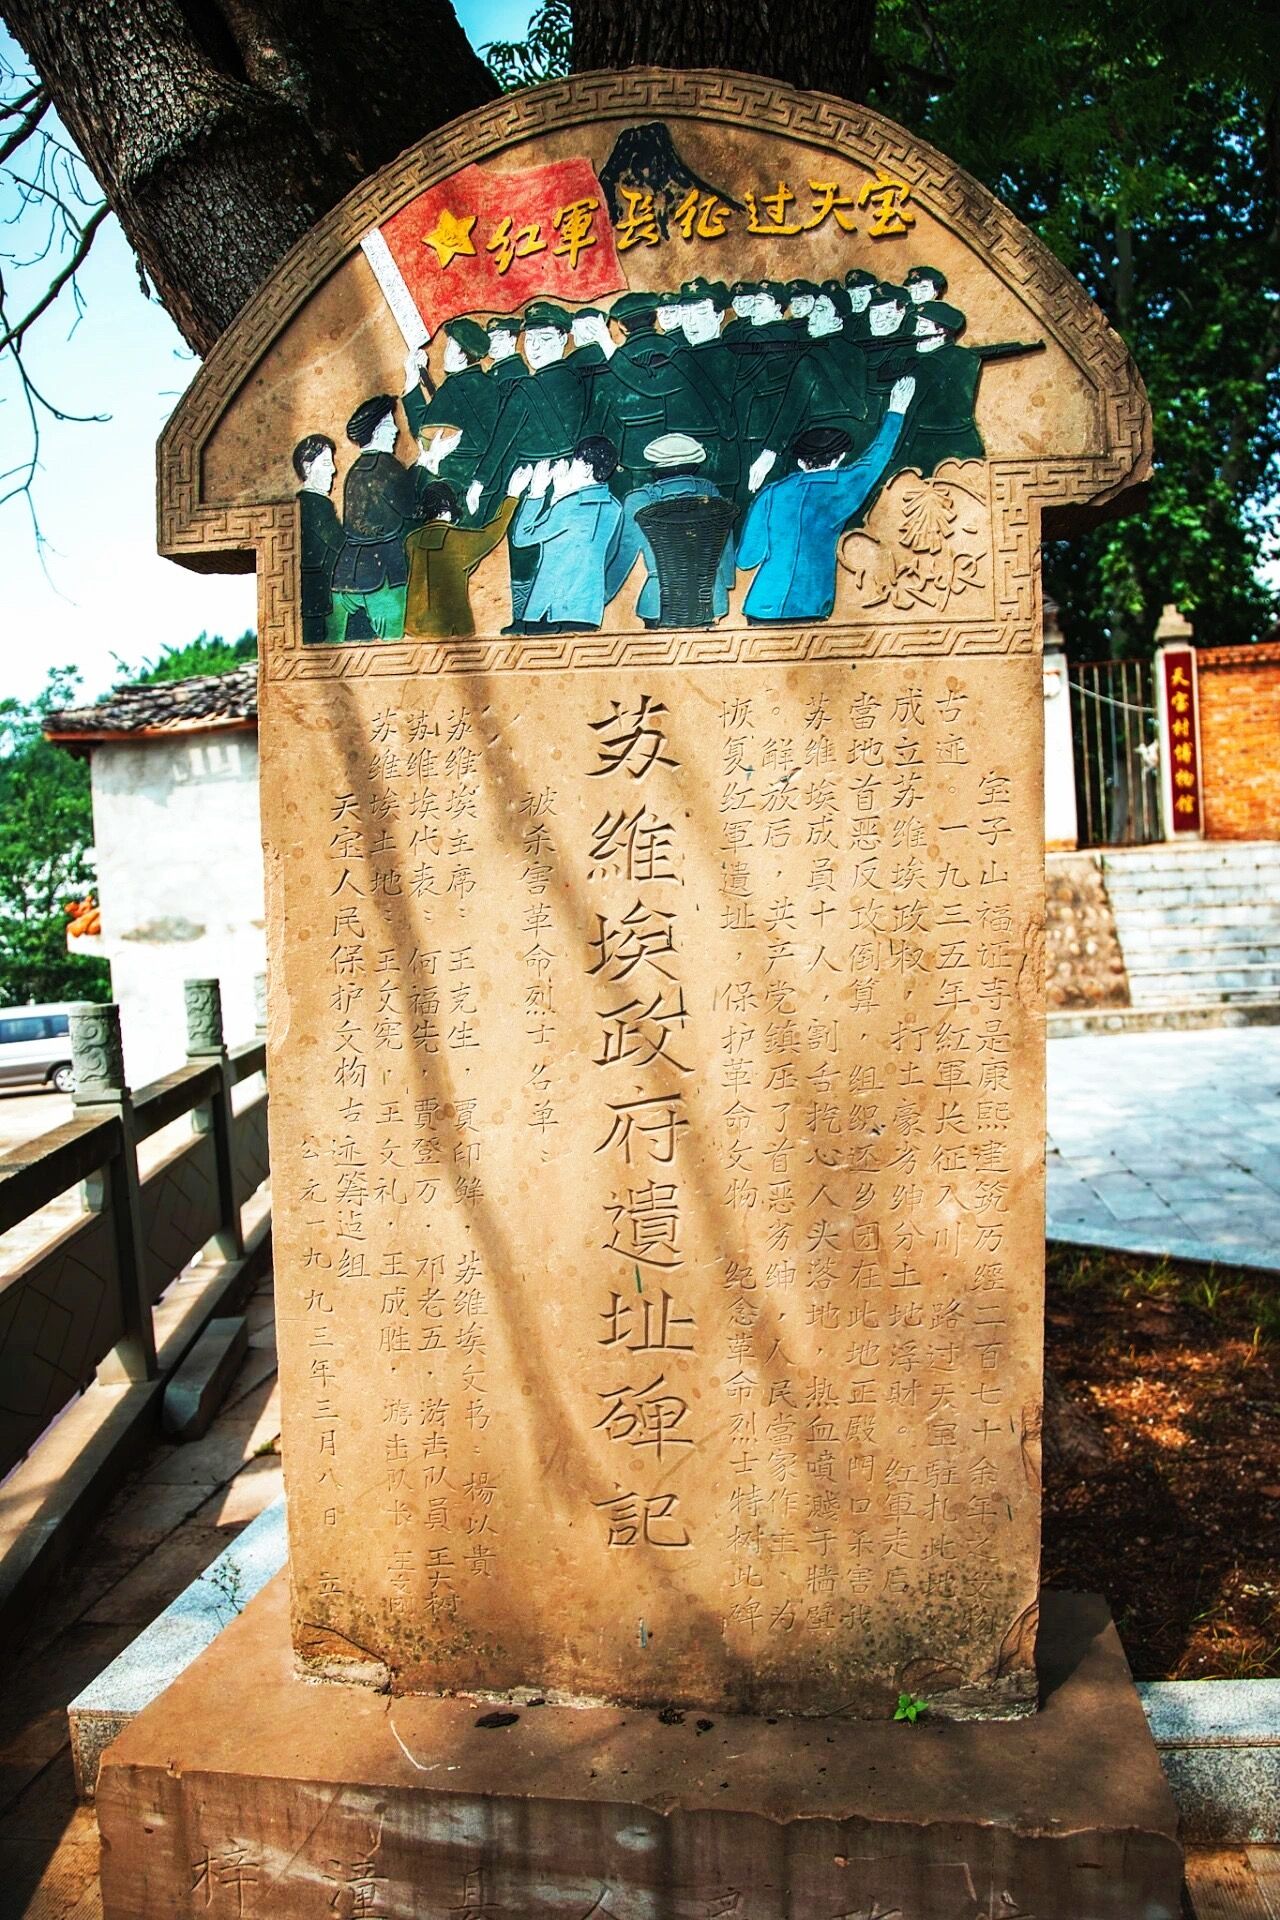 红軍長征过天宝
宝子山福证寺是康熙建筑历經二百七十余年之文物
古迹。一九三五年紅軍长征入川，路过天宝駐扎此地
成立苏维埃政权，打土豪劣绅分土地浮財。红軍走后
當地首恶反攻倒算，组织还乡团在此地正殿門口杀害我
苏维埃成員十人，割舌挖心人头落地，热血噴溅于牆壁
。解放后，共产党鎮圧了首恶劣绅，人民當家作主、为
恢复红軍遺址，保护革命文物 纪念革命烈士特树此碑
苏維埃政府遺址碑記
被杀害革命烈士名单：
苏维埃主席：王克生，賈印鲜，苏维埃文书：楊以贵
苏维埃代表：何福先，賈登万．邓老五，游击队員 王大树
苏维埃土地：王文宪，王文礼，王成胜，游击队长 王文刚
天宝人民保护文物古迹筹站组
公元一九九三年三月八日 立
梓潼县人民政府
天宝村博物馆